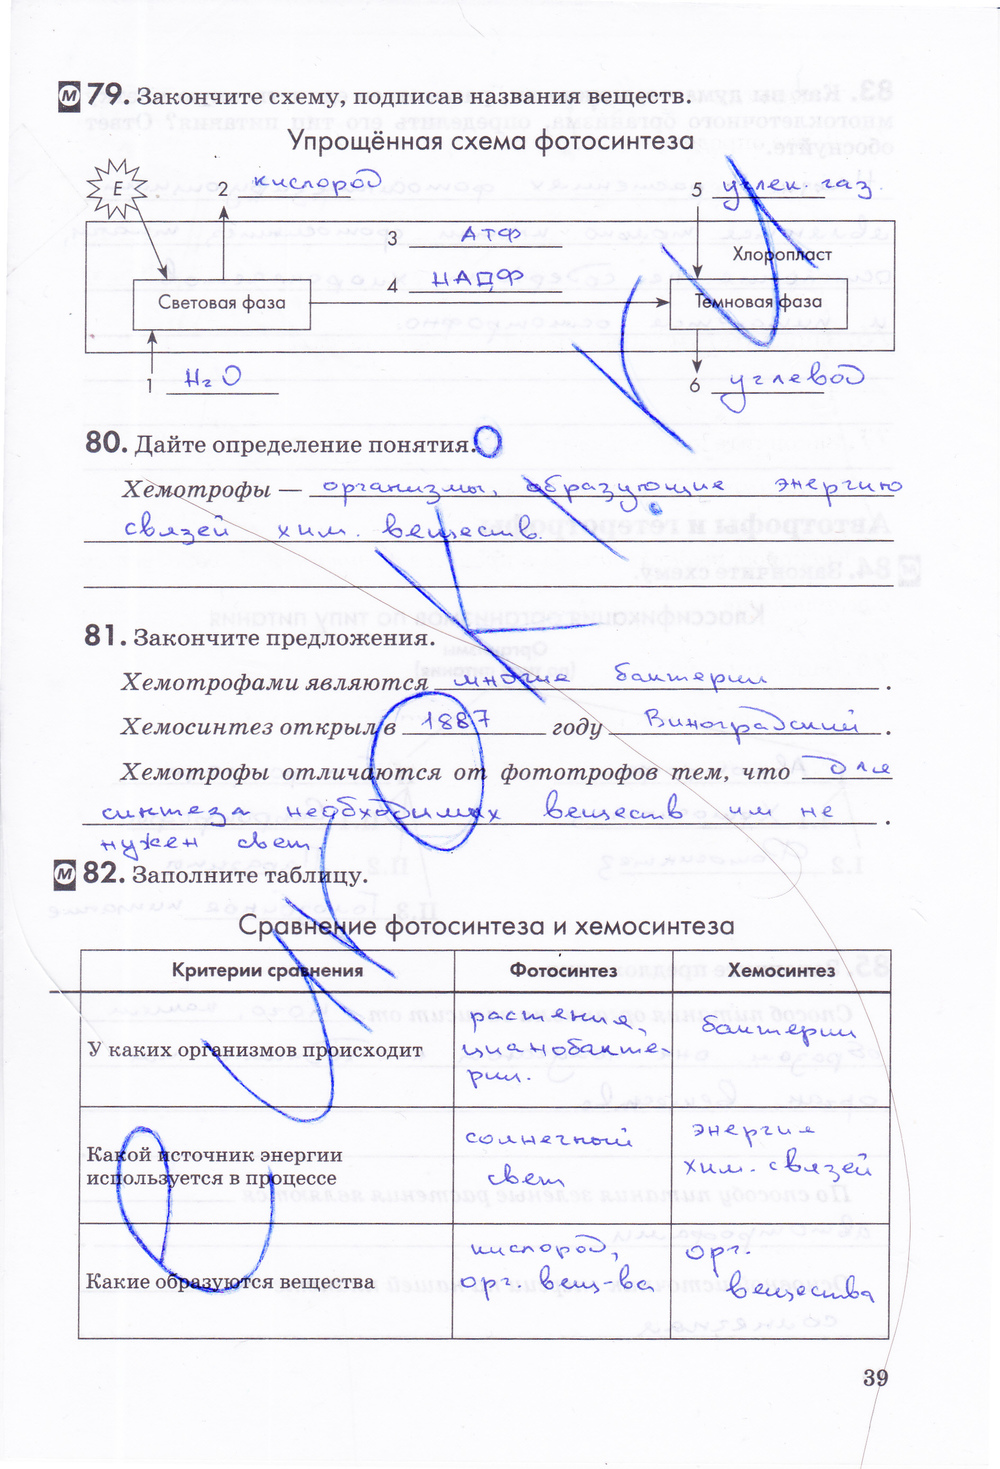 М 79. Закончите схему, подписав названия веществ.
Упрощённая схема фотосинтеза
E
2 кислород
5 углек. газ.
3 АТФ
Хлоропласт
4 НАДФ
Световая фаза
Темновая фаза
1 H₂O
6 углевод
80. Дайте определение понятия.
Хемотрофы — организмы, образующие энергию
связей хим. веществ.
81. Закончите предложения.
Хемотрофами являются многие бактерии .
Хемосинтез открыл в 1887 году Виноградский .
Хемотрофы отличаются от фототрофов тем, что для
синтеза необходимых веществ им не .
нужен свет.
М 82. Заполните таблицу.
Сравнение фотосинтеза и хемосинтеза
Критерии сравнения Фотосинтез Хемосинтез
У каких организмов происходит
растения,
цианобакте-
рии.
бактерии
Какой источник энергии
используется в процессе
солнечный
свет
энергия
хим. связей
Какие образуются вещества
кислород,
орг. вещ-ва
орг.
вещества
39